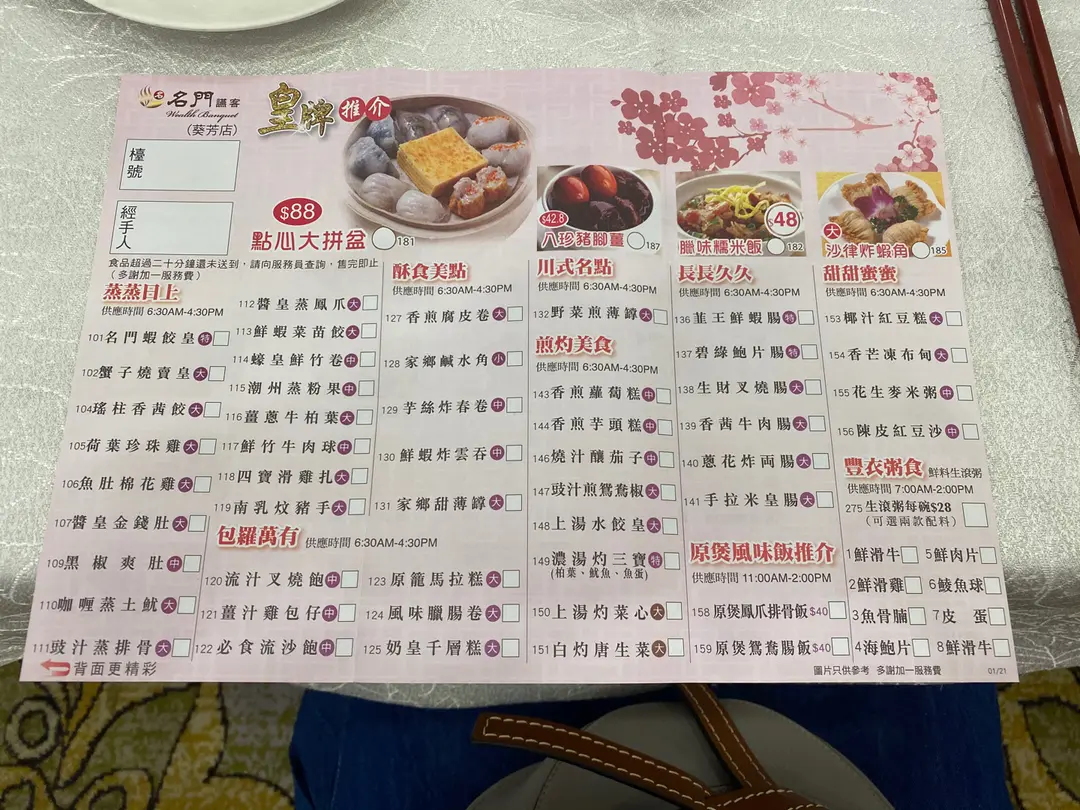 名門讌客
Wealth Banquet
(葵芳店)
皇牌推介
檯號
經手人
$88
點心大拼盆 181
$42.8
八珍豬腳薑 187
$48
臘味糯米飯 182
大
沙律炸蝦角 185
食品超過二十分鐘還未送到，請向服務員查詢，售完即止
(多謝加一服務費)
蒸蒸日上
供應時間 6:30AM-4:30PM
101 名門蝦餃皇 特
102 蟹子燒賣皇 大
104 瑤柱香茜餃 大
105 荷葉珍珠雞 大
106 魚肚棉花雞 大
107 醬皇金錢肚 大
109 黑椒爽肚 中
110 咖喱蒸土魷 大
111 豉汁蒸排骨 大
112 醬皇蒸鳳爪 大
113 鮮蝦菜苗餃 大
114 蠔皇鮮竹卷 中
115 潮州蒸粉果 中
116 薑蔥牛柏葉 大
117 鮮竹牛肉球 中
118 四寶滑雞扎 大
119 南乳炆豬手 大
包羅萬有 供應時間 6:30AM-4:30PM
120 流汁叉燒飽 中
121 薑汁雞包仔 中
122 必食流沙飽 中
123 原籠馬拉糕 大
124 風味臘腸卷 大
125 奶皇千層糕 大
酥食美點
供應時間 6:30AM-4:30PM
127 香煎腐皮卷 大
128 家鄉鹹水角 小
129 芋絲炸春卷 中
130 鮮蝦炸雲吞 中
131 家鄉甜薄罉 大
川式名點
供應時間 6:30AM-4:30PM
132 野菜煎薄罉 大
煎灼美食
供應時間 6:30AM-4:30PM
143 香煎蘿蔔糕 中
144 香煎芋頭糕 中
146 燒汁釀茄子 中
147 豉汁煎鴛鴦椒 大
148 上湯水餃皇 大
149 濃湯灼三寶 特
(柏葉、魷魚、魚蛋)
150 上湯灼菜心 大
151 白灼唐生菜 大
長長久久
供應時間 6:30AM-4:30PM
136 韮王鮮蝦腸 特
137 碧綠鮑片腸 特
138 生財叉燒腸 大
139 香茜牛肉腸 大
140 蔥花炸両腸 大
141 手拉米皇腸 大
原煲風味飯推介
供應時間 11:00AM-2:00PM
158 原煲鳳爪排骨飯 $40
159 原煲鴛鴦腸飯 $40
甜甜蜜蜜
供應時間 6:30AM-4:30PM
153 椰汁紅豆糕 大
154 香芒凍布甸 大
155 花生麥米粥 中
156 陳皮紅豆沙 中
豐衣粥食 鮮料生滾粥
供應時間 7:00AM-2:00PM
275 生滾粥每碗$28
(可選兩款配料)
1 鮮滑牛 5 鮮肉片
2 鮮滑雞 6 鯪魚球
3 魚骨腩 7 皮蛋
4 海鮑片 8 鮮滑牛
背面更精彩
圖片只供參考 多謝加一服務費 01/21